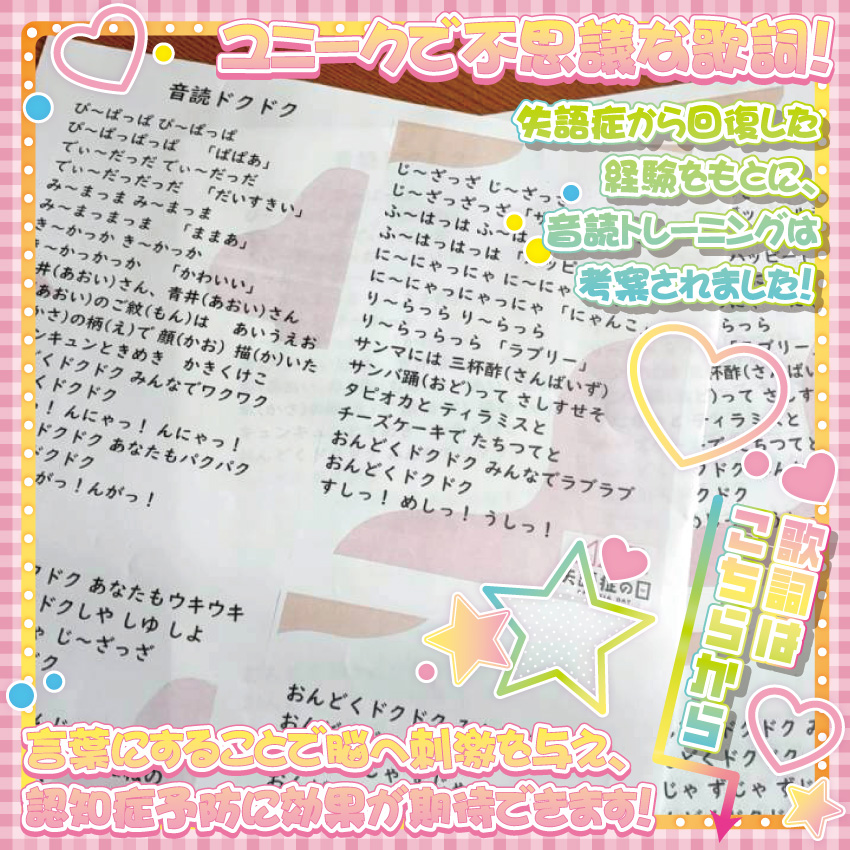 ユニークで不思議な歌詞!
失語症から回復した
経験をもとに、
音読トレーニングは
考案されました!
音読ドクドク
ぴ〜ぱっぱ ぴ〜ぱっぱ
ぴ〜ぱっぱっぱ 「ぱぱあ」
でぃ〜だっだ でぃ〜だっだ
でぃ〜だっだっだ 「だいすきい」
み〜まっま み〜まっま
み〜まっまっま 「ままあ」
き〜かっか き〜かっか
き〜かっかっか 「かわいい」
井(あおい)さん、青井(あおい)さん
あおい)のご紋(もん)は あいうえお
かさ)の柄(え)で 顔(かお) 描(か)いた
ンキュンとときめき かきくけこ
どくドクドク みんなでワクワク
くドクドク
っ! んにゃっ! んにゃっ!
ドクドク あなたもパクパク
ドクドク
がっ!んがっ!
じ〜ざっざ じ〜ざっざ
じ〜ざっざっざ
ふ〜はっは ふ〜は
ふ〜はっはっは
に〜にゃっにゃ に〜にゃ
に〜にゃっにゃっにゃ 「にゃんこ
り〜らっら り〜らっら
り〜らっらっら 「ラブリー」
サンマには 三杯酢(さんばいず)
サンバ踊(おど)って さしすせそ
タピオカと ティラミスと
チーズケーキで たちつてと
おんどくドクドク みんなでラブラブ
おんどくドクドク
すしっ! めしっ! うしっ!
らっら
杯酢(さんばい
)って さしす
ミスと
で たちつてと
ドクドク
クドク
歌詞は
こちらから
クドク あなたもウキウキ
ドクしや しゆ しよ
ゃ じ〜ざっざ
ドク
おんどくドクドク
言葉にすることで脳へ刺激を与え、
認知症予防に効果が期待できます!